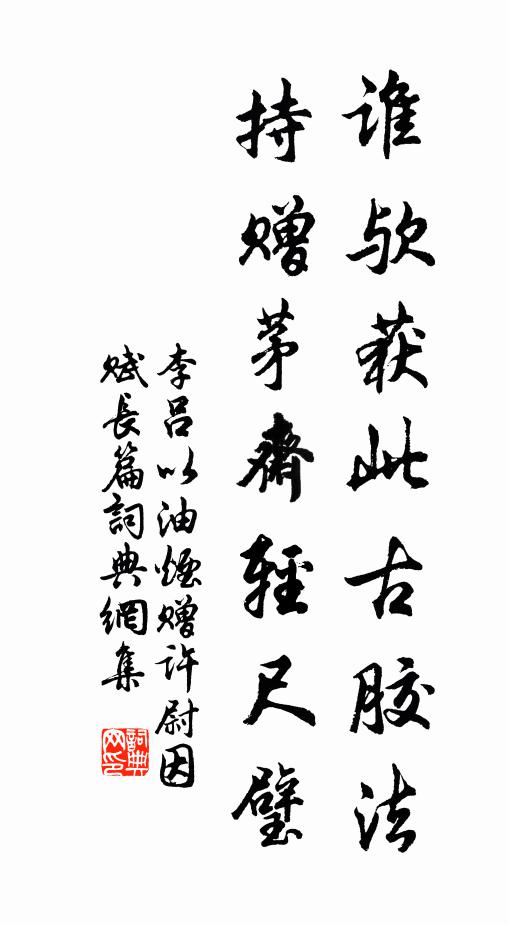 誰歟獲此古胶法
持贈茅齋輕尺璧
李呂以油煙贈許尉因
賦長篇詞典網集
詞典网印